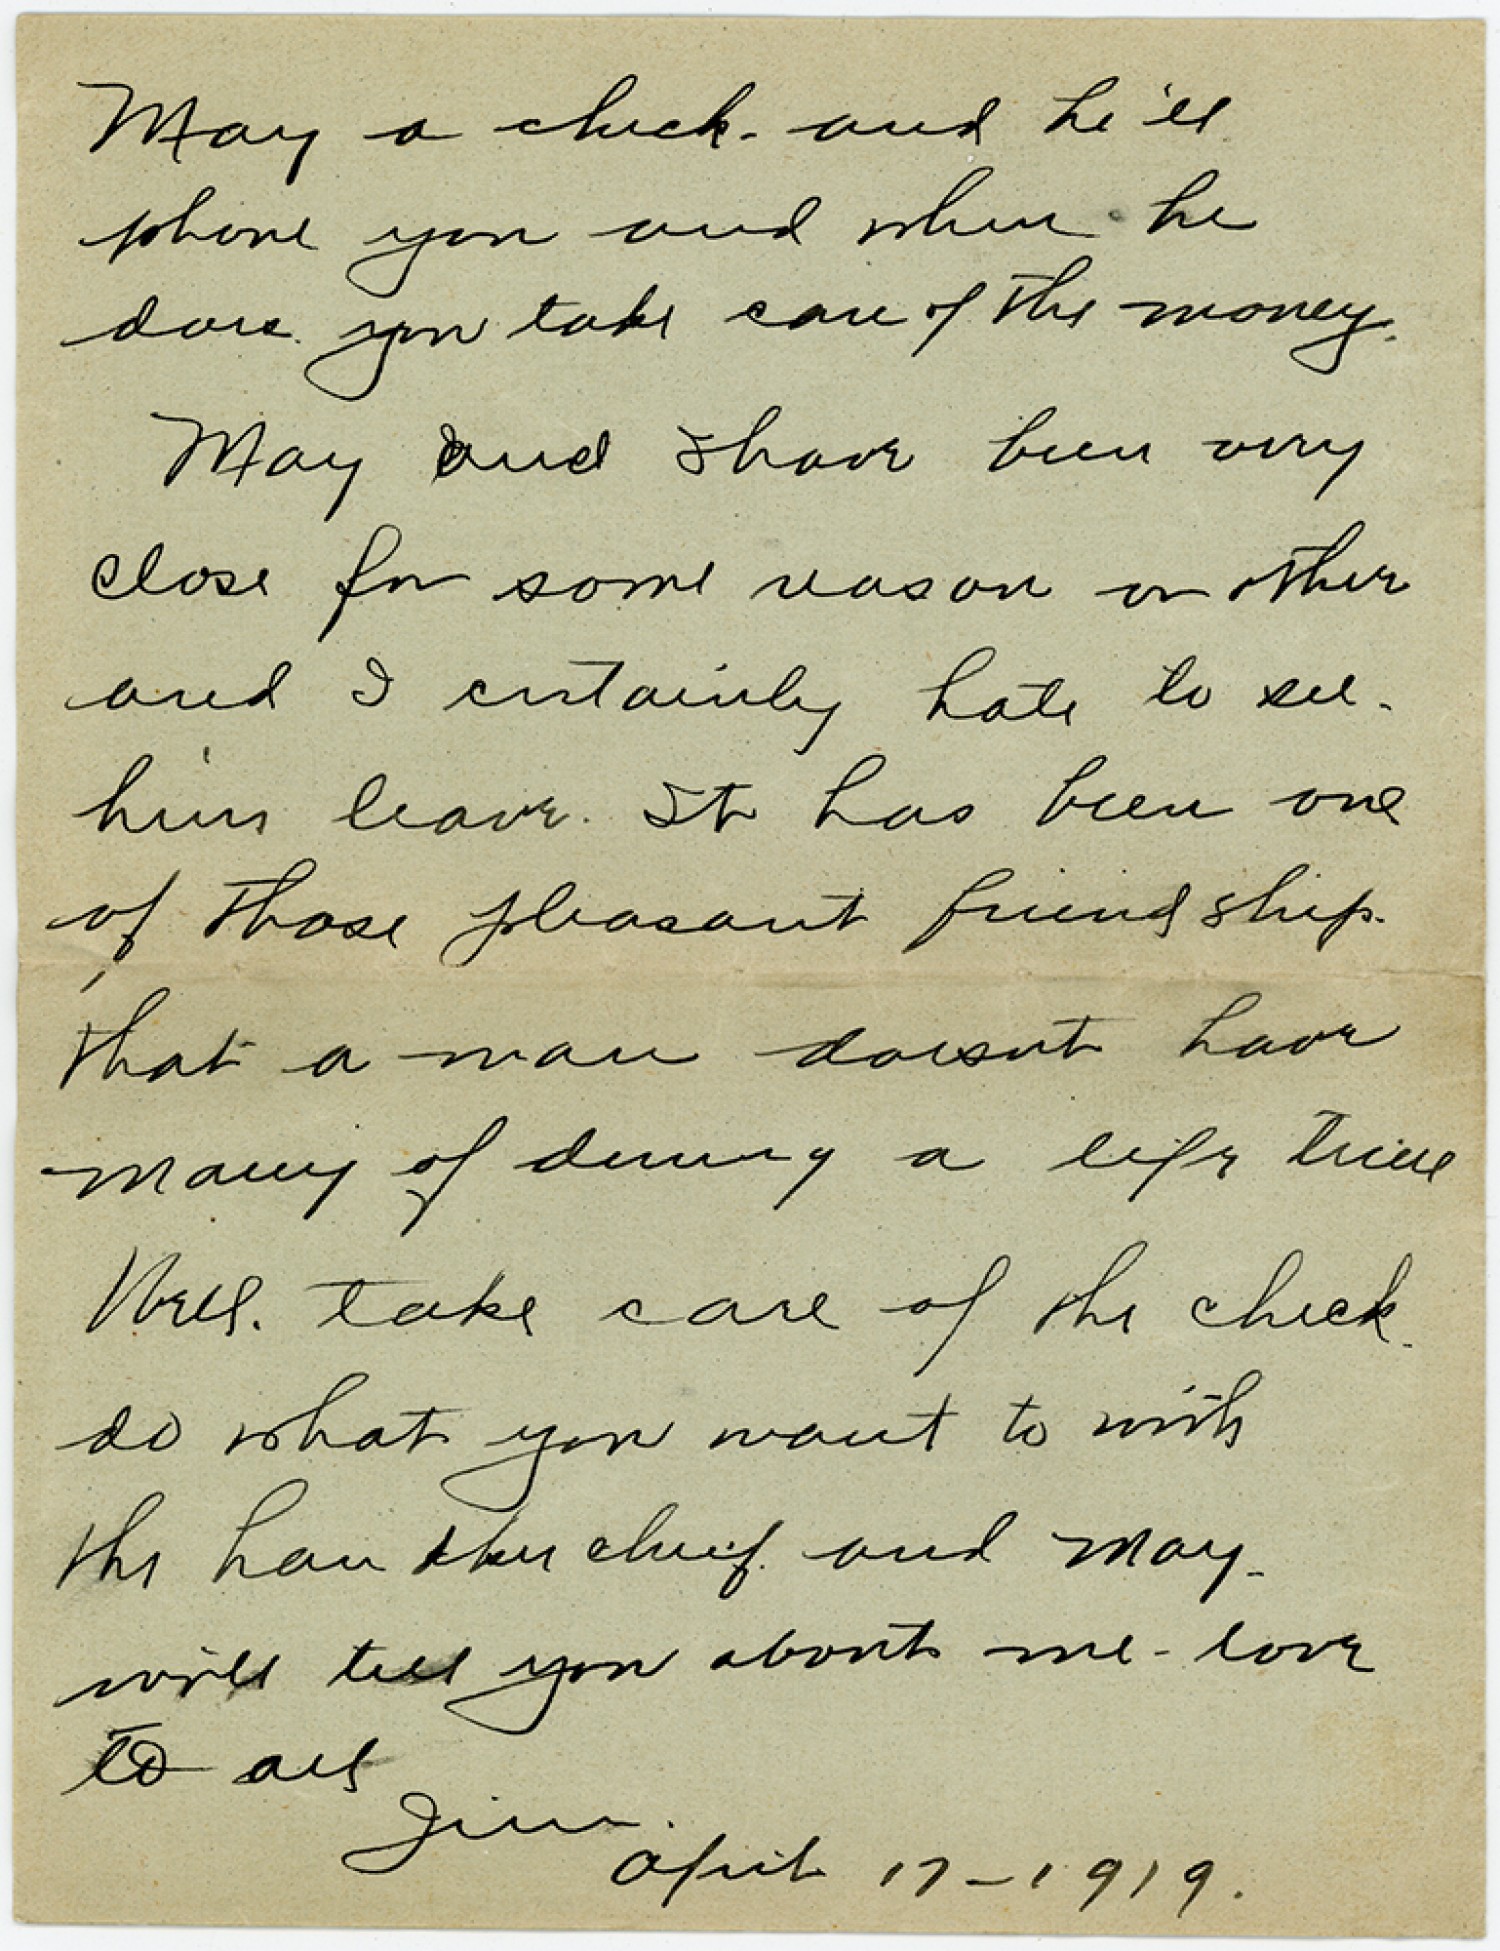 May a check. and he'll
phone you and when he
does you take care of the money.
May and I have been very
close for some reason or other
and I certainly hate to see
him leave. It has been one
of those pleasant friendship.
that a man doesnt have
many of during a life time
Well. take care of the check.
do what you want to with
the handkerchief. and May.
will tell you about me - love
to all
Jim.
April 17-1919.